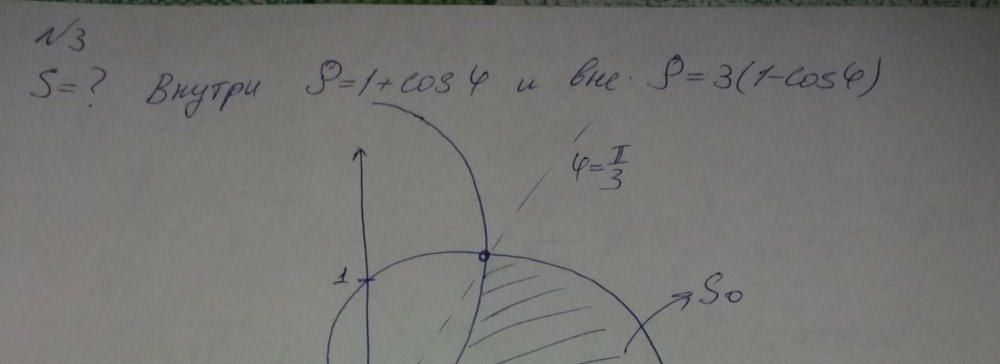 N3
S=? Внутри ρ=1+cosφ и вне ρ=3(1-cosφ)
φ=π/3
1
S₀